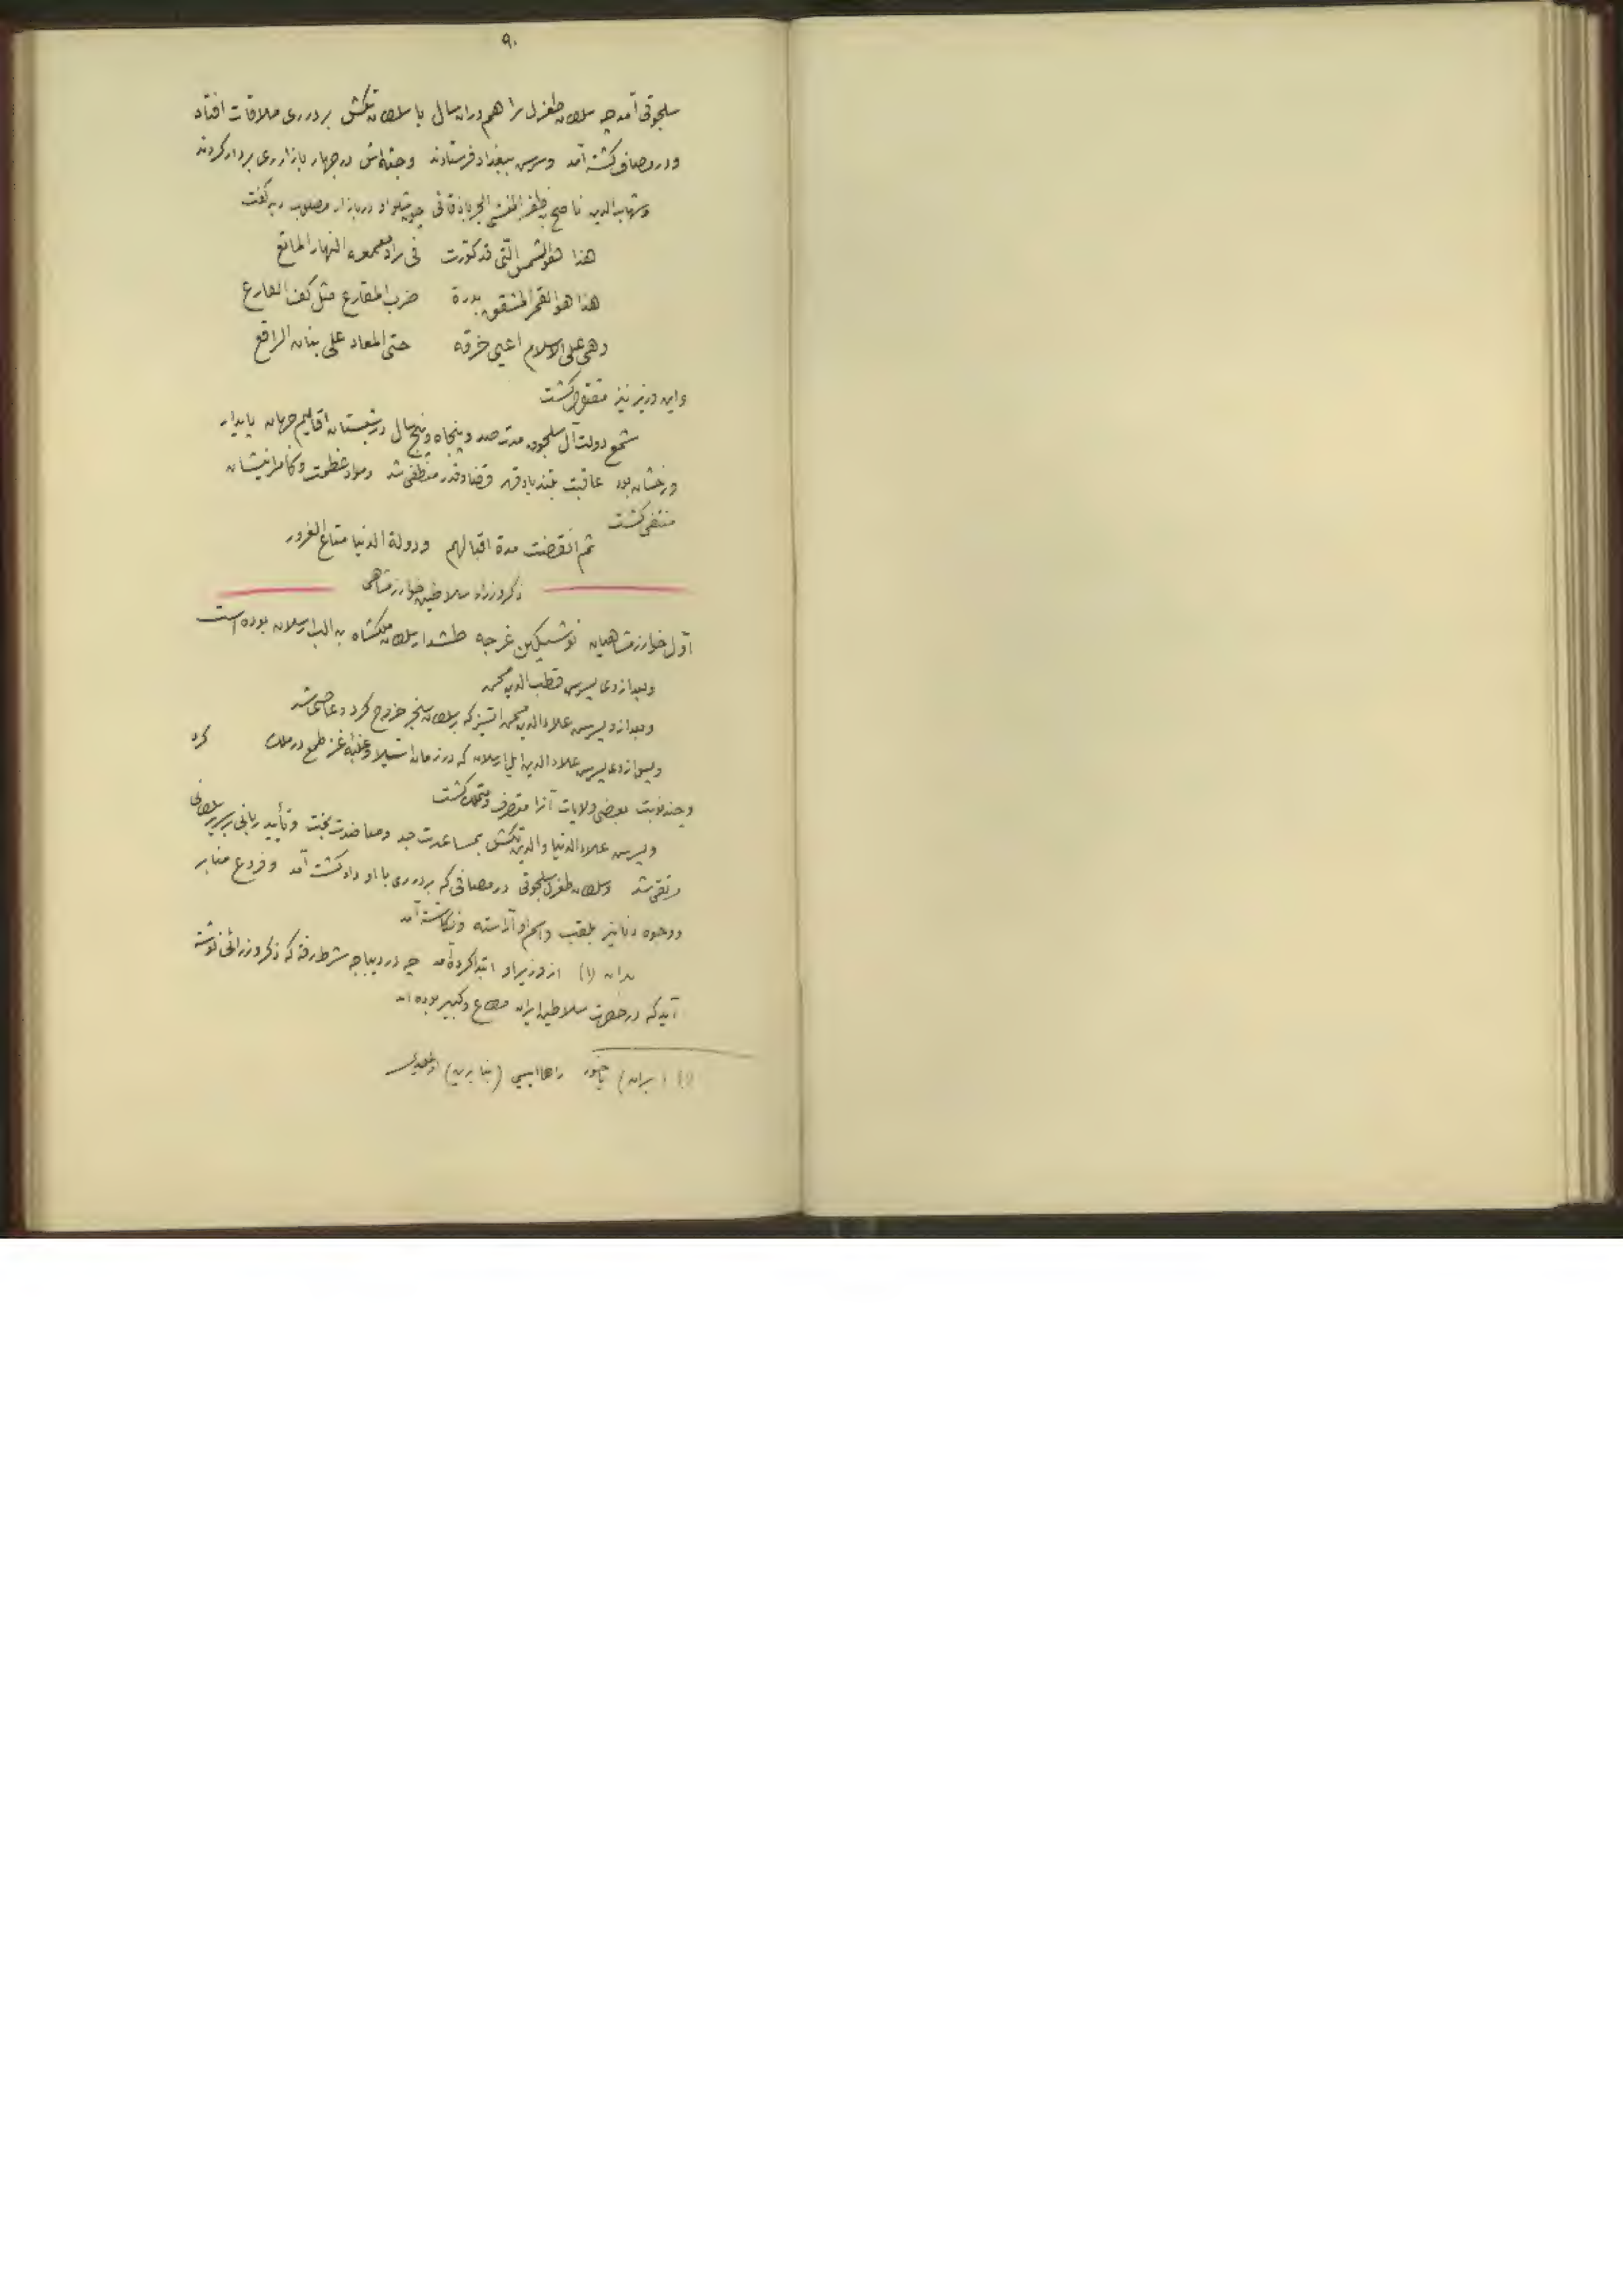 ۹۰
سلجوقی آمد چه سلطان طغرل را هم در ان سال با سلطان تکش بر در ری ملاقات افتاد
و در مصاف کشته آمد و سرس ببغداد فرستادند و جثه‌اش در چهار بازار ری بر دار کردند
وشهاب الدین ناصح بن ظفر المنشی الجرباذقانی چو مقتول او در بازار مصلوب دید گفت
هذا هو الشمس التی قد کورت فی راد النهار الماتع
هذا هو القمر المنشق بدرة ضرب المقارع مثل کف القارع
وهی علی الاسلام اعیی خرقه حتی المعاد علی بنان الراقع
واین وزیر نیز منقرض گشت
شمع دولت آل سلجوق مدت صد و پنجاه و پنج سال در شبستان اقالیم جهان پایدار
ورخشان بود عاقبت بتندباد قهر قضا و قدر منطفی شد ومواد عظمت و کامرانیشان
منتفی گشت
ثم انقضت مدة اقبالهم ودولة الدنیا متاع الغرور
ذکر وزراء سلاطین خوارزمشاهی
اول خوارزمشاهیان نوشتکین غرجه طشتدار سلطان ملکشاه بن الب ارسلان بوده است
وبعد از وی پسرس قطب الدین محمد
وبعد از و پسرس علاء الدین محمد اتسز که بر سلطان سنجر خروج کرد و عاصی شد
وپس از وی پسرس علاء الدین ایل ارسلان که در زمان استیلا و غلبه غز طمع در ملک کرد
وچند نوبت بعضی ولایات آنرا متصرف و متملک گشت
وپسرس علاء الدنیا والدین تکش بمساعدت جد ومعاضدت بخت وتأیید ربانی بر سریر سلطانی
مرتقی شد وسلطان طغرل سلجوقی در مصافی که بر در ری با او داد کشته آمد وفروع منابر
ووجوه دنانیر بلقب واسم او آراسته ونگاشته آمد
بدان (۱) از وزیر او ابتدا کرده آمد چه در دیباجه شرط رفته که ذکر وزرائی نوشته
آید که در حضرت سلاطین ایران مطاع وکبیر بوده اند
(۱) (بدان)